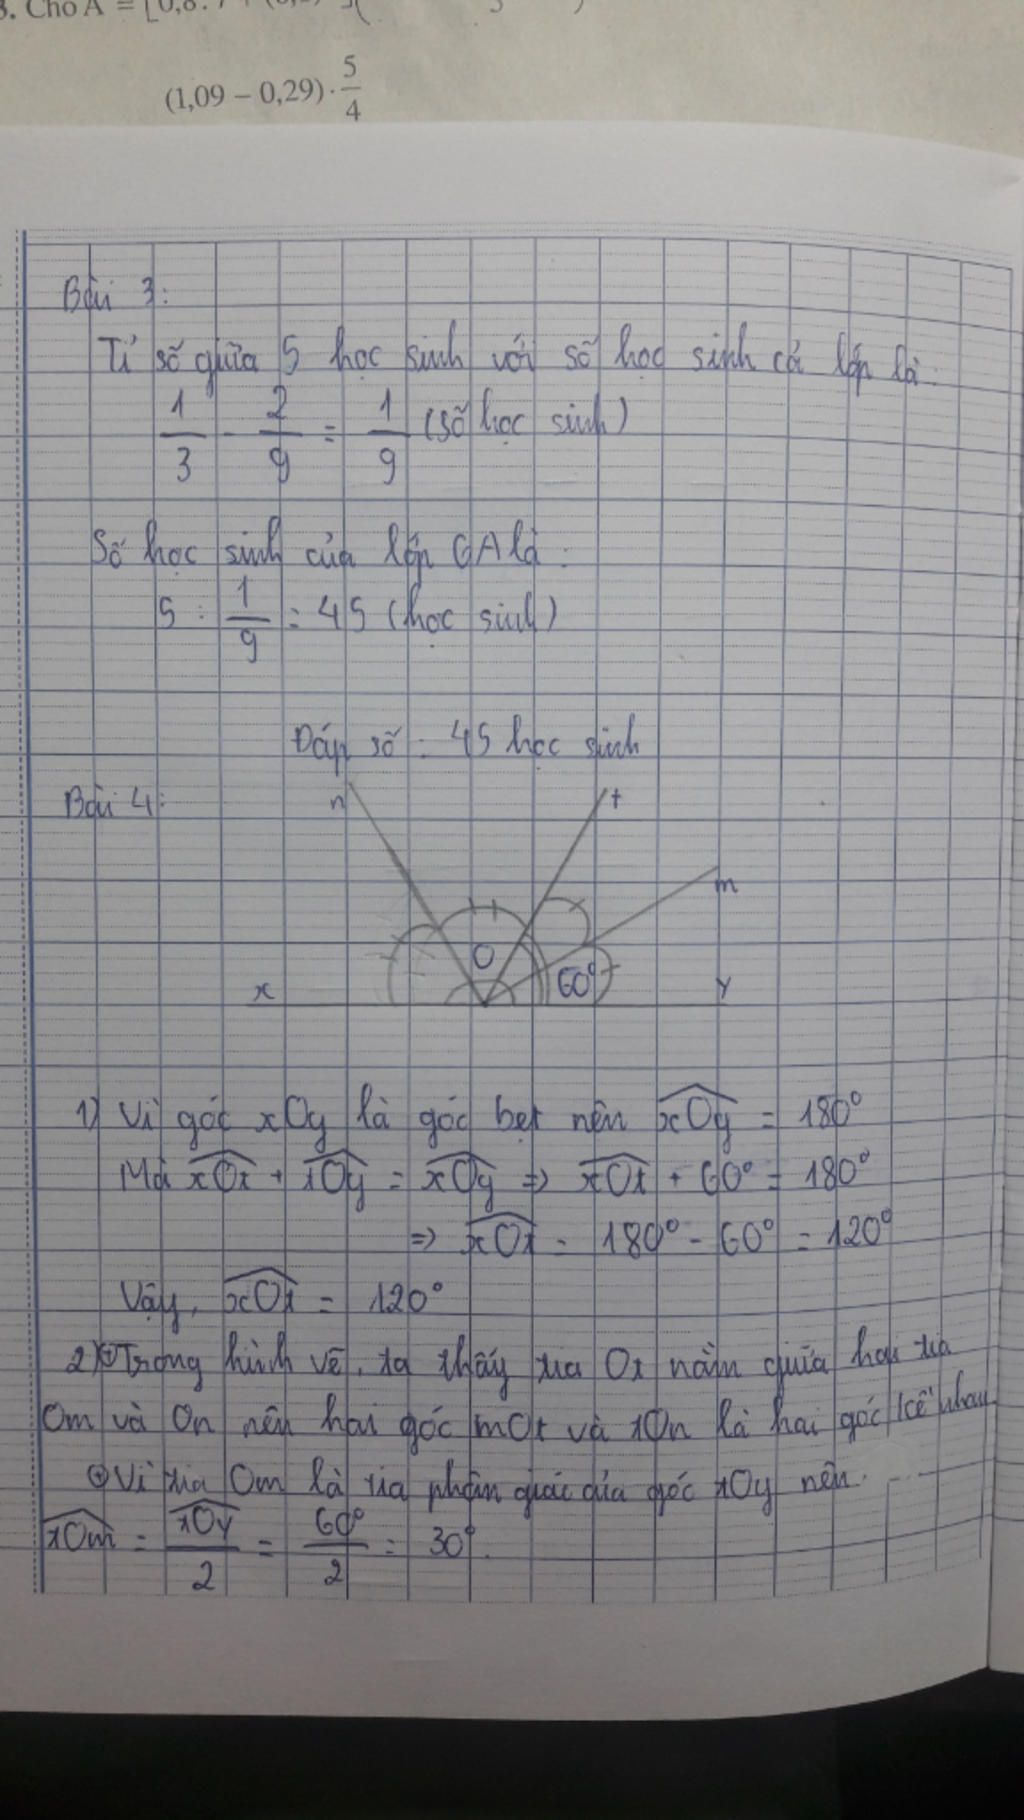 3. Cho A = [0,8.7 + (0,
(1,09 – 0,29) · 5/4
Bài 3:
Tỉ số giữa 5 học sinh với số học sinh cả lớp là:
1/3 - 2/9 = 1/9 (số học sinh)
Số học sinh của lớp 6A là:
5 : 1/9 = 45 (học sinh)
Đáp số: 45 học sinh
Bài 4:
n t
m
O 60°
x y
1) Vì góc xOy là góc bẹt nên xOy = 180°
Mà xOt + tOy = xOy => xOt + 60° = 180°
=> xOt = 180° - 60° = 120°
Vậy, xOt = 120°
2) + Trong hình vẽ, ta thấy tia Ot nằm giữa hai tia
Om và On nên hai góc mOt và tOn là hai góc kề nhau
+ Vì tia Om là tia phân giác của góc tOy nên:
tOm = tOy/2 = 60°/2 = 30°.